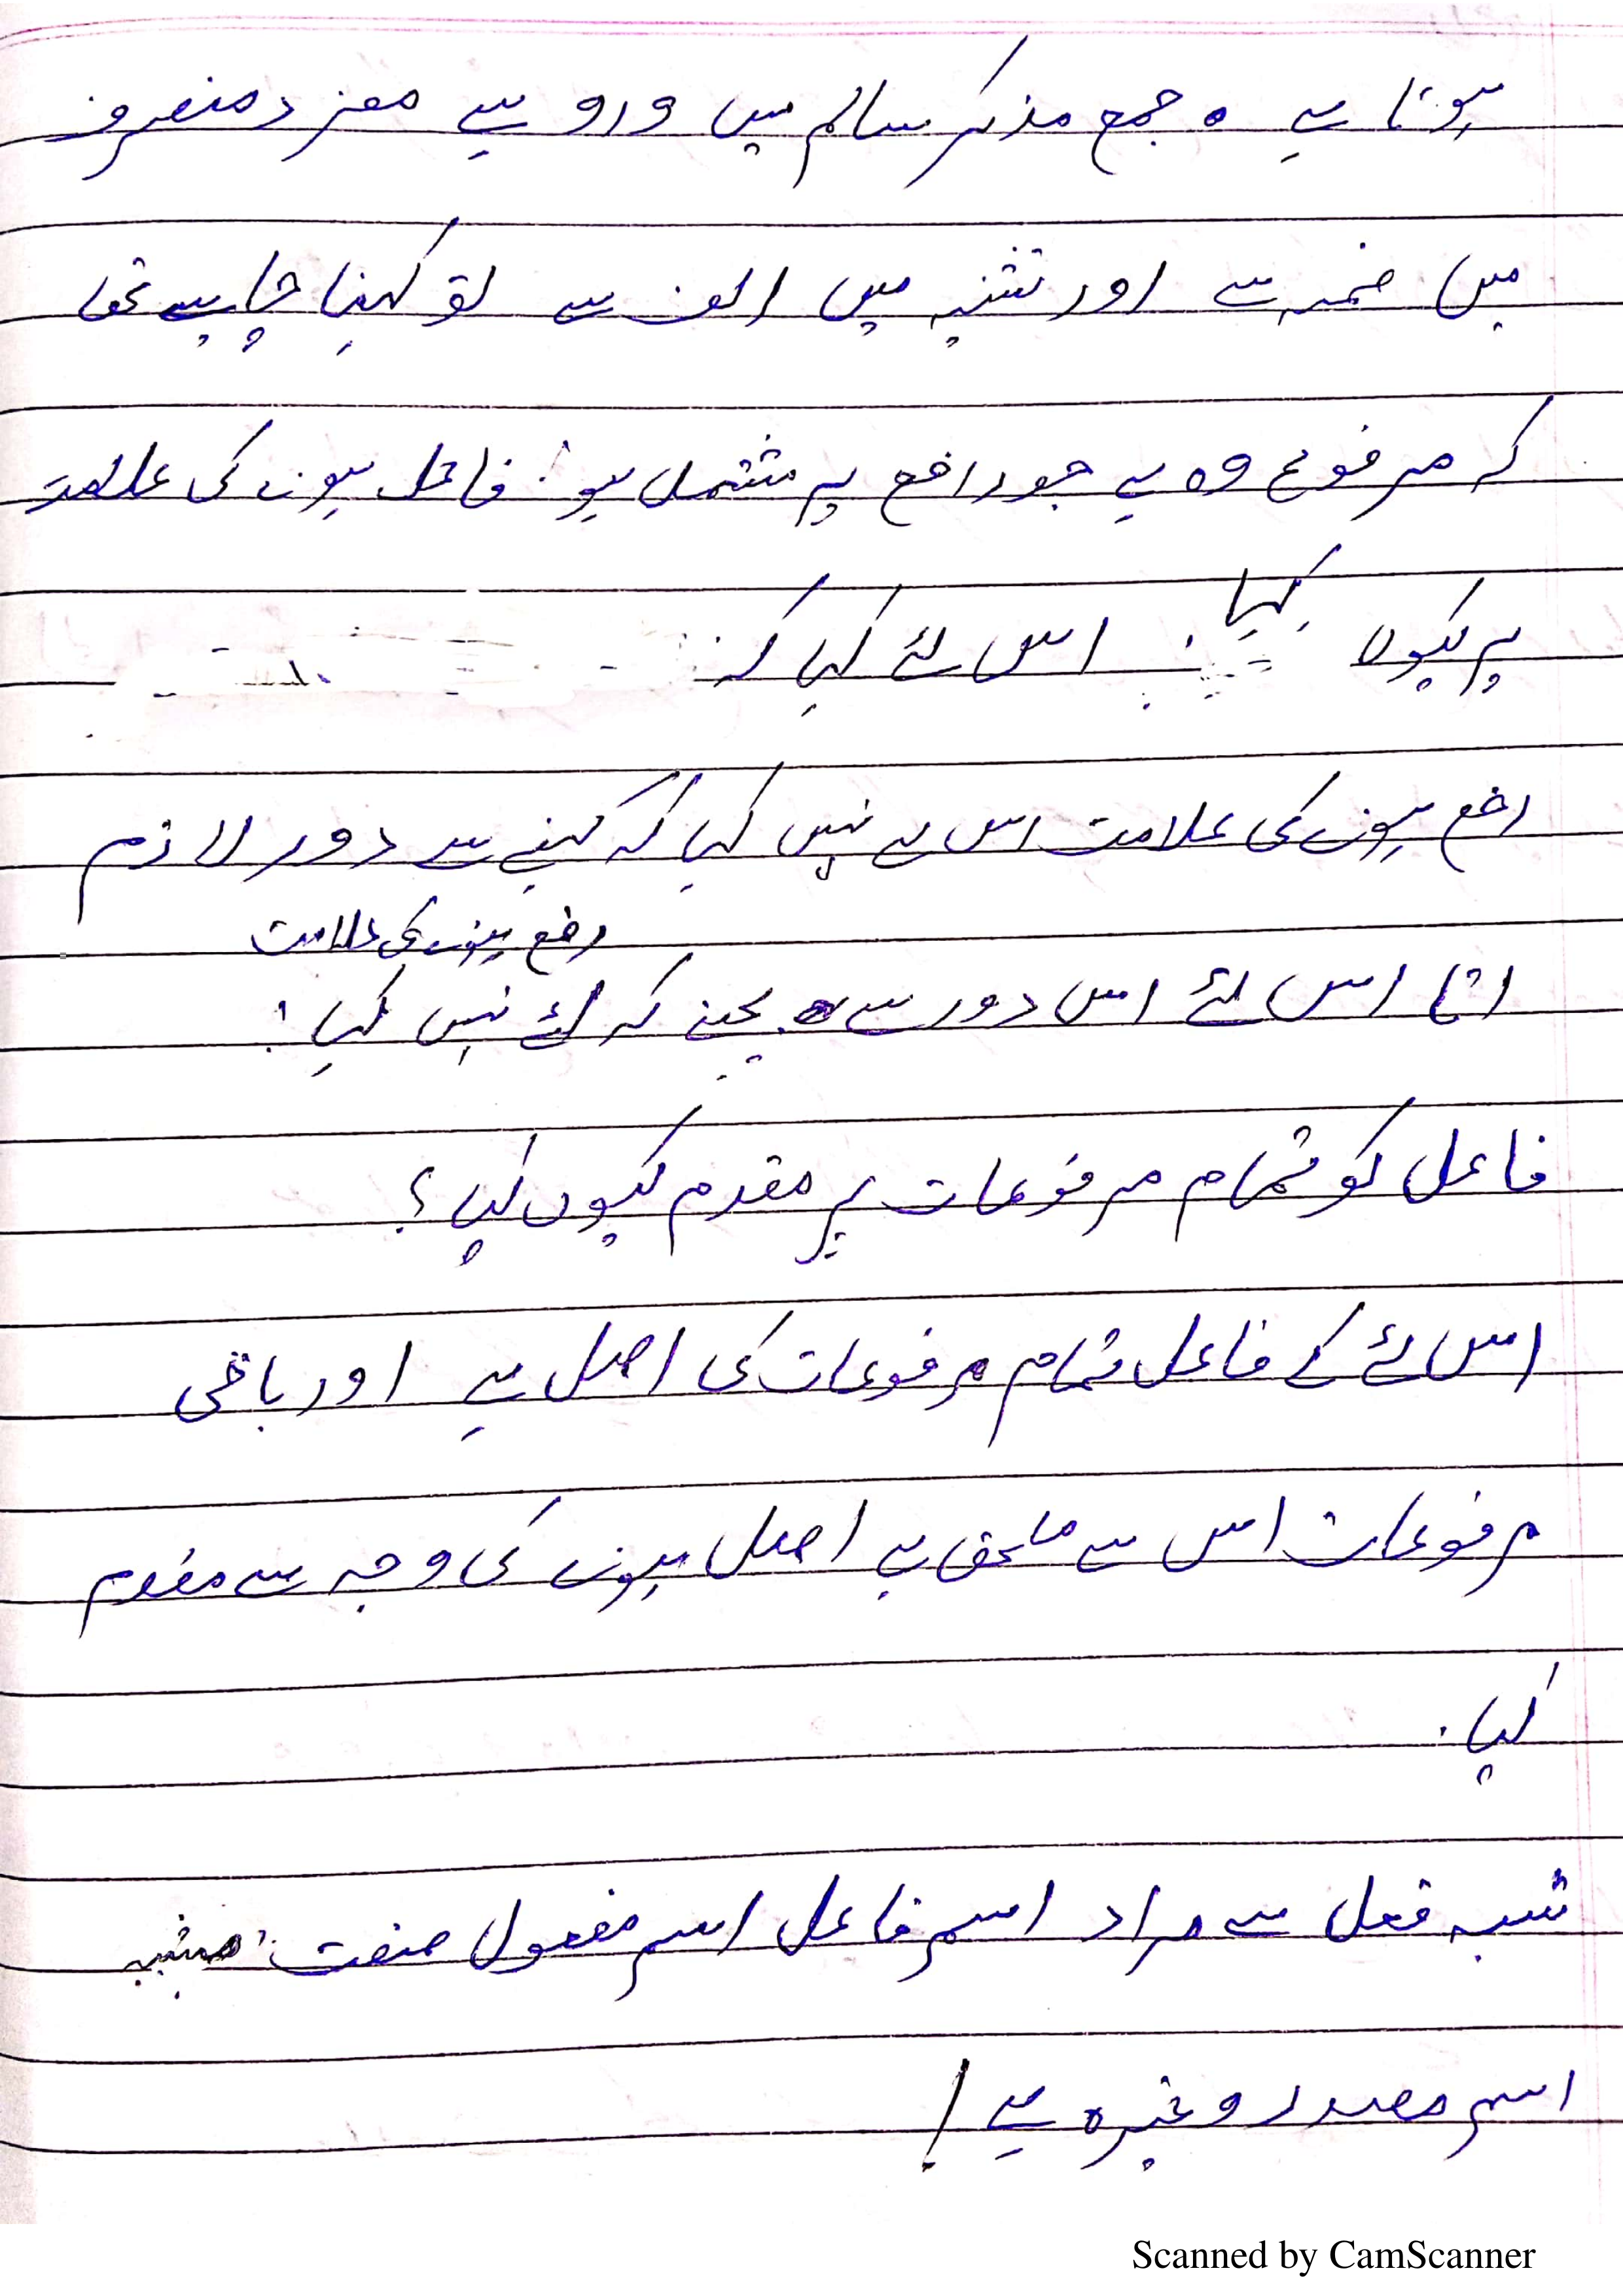 ہوتا ہے ۔ جمع مذکر سالم میں ورو سے مفرد منصرف
میں ضمہ سے اور تثنیہ میں الف سے تو کہنا چاہیے تھا
کہ مرفوع وہ ہے جو رافع پر مشتمل ہو: فاعل ہونے کی علامت
پر کیوں کہا: اس لئے کہا کہ
رفع ہونے کی علامت اس لے نہیں کہا کہ کہنے سے دور لازم
رفع ہونے کی علامت
اتا اس لئے اس دور سے بچنے کہ لئے نہیں کہا :
فاعل کو تمام مرفوعات پر مقدم کیوں کیا ؟
اس لئے کے فاعل تمام مرفوعات کی اصل ہے اور باقی
مرفوعات اس سے ملحق ہے اصل ہونے کی وجہ سے مقدم
کیا .
شبہ فعل سے مراد اسم فاعل اسم مفعول صفت مشبہ
اسم مصدر وغیرہ ہے !
Scanned by CamScanner